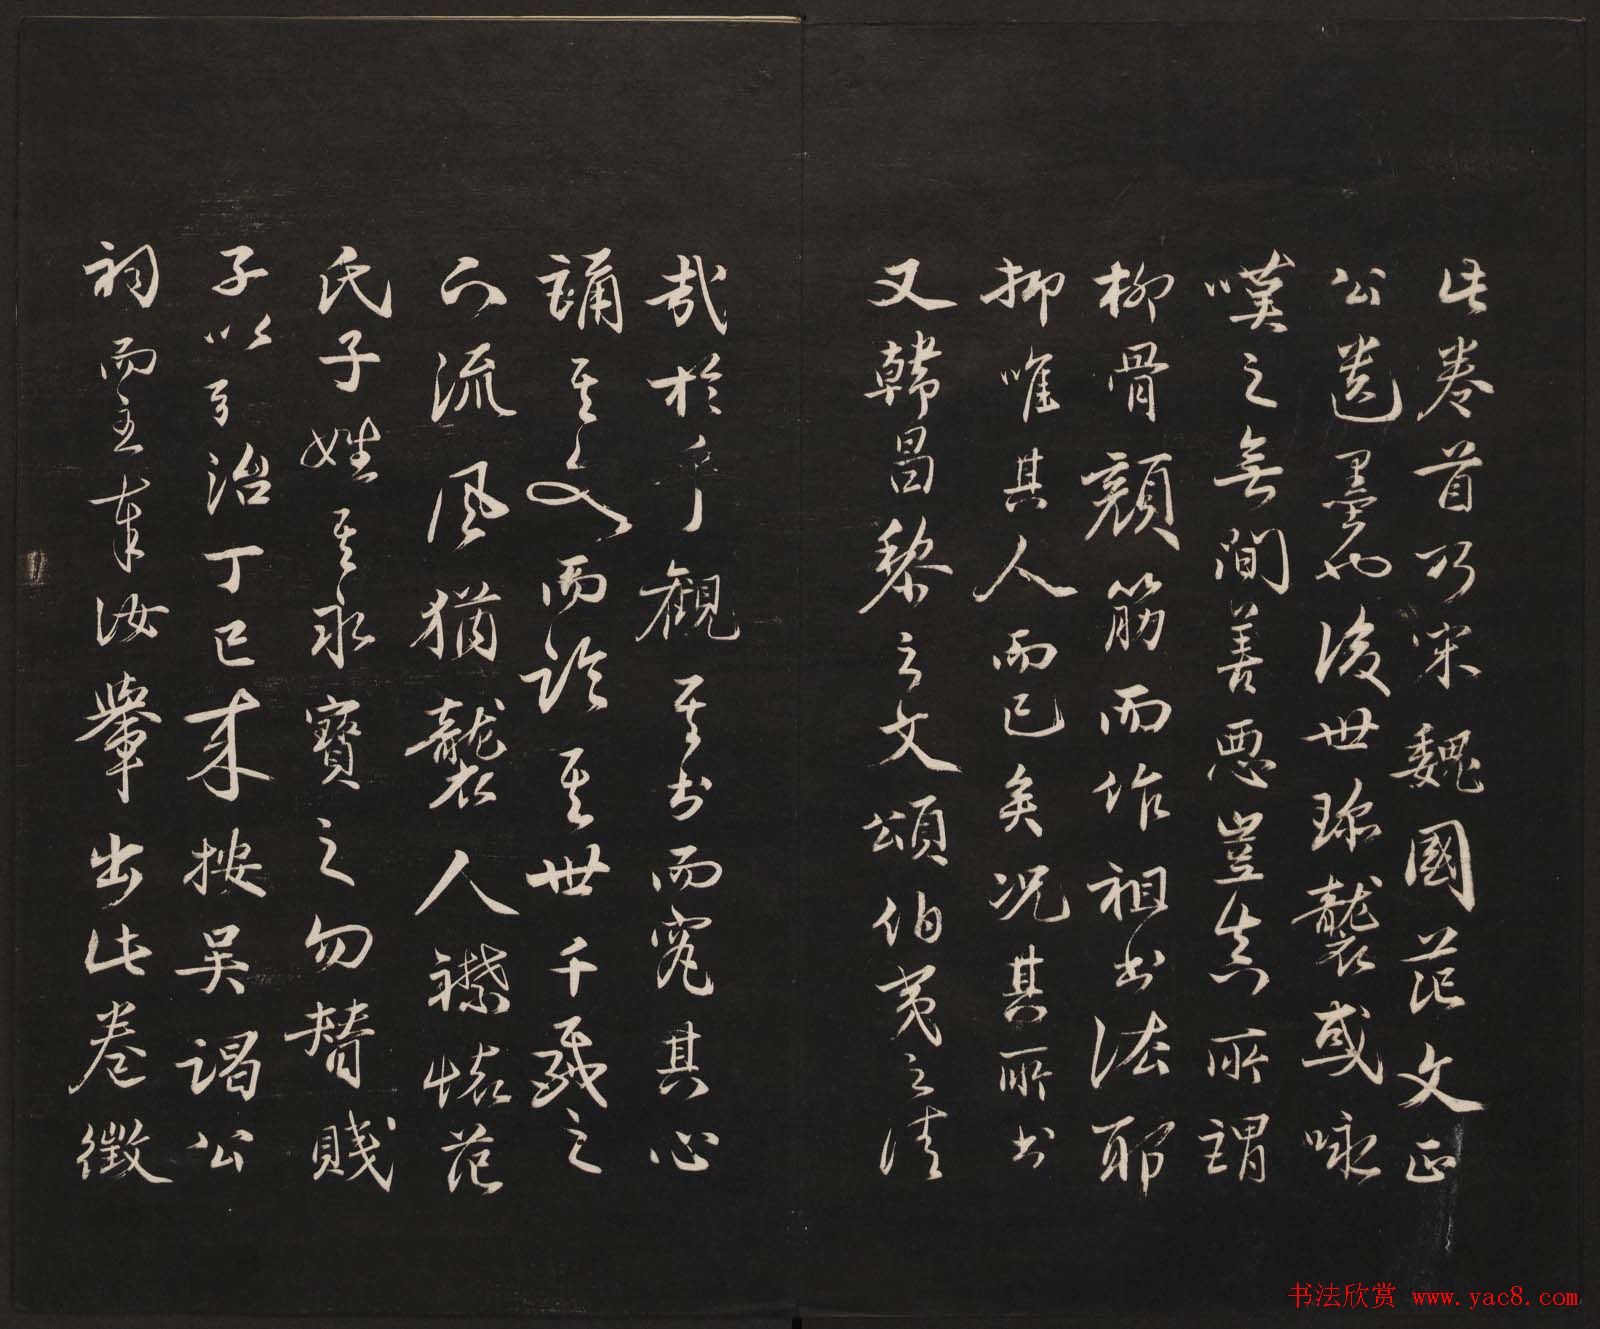 此卷首乃宋魏國范文正
公遺墨也後世珍襲或咏
嘆之無間善惡豈真所謂
柳骨顏筋而作祖書法耶
抑唯其人而已矣況其所書
又韓昌黎之文頌伯夷之清
哉於乎觀其書而究其心
誦其文而論其世千載之
下流風猶襲人襟懷范
氏子姓其永寶之勿替賤
子以引治丁巳來按吳謁公
祠而主奉汝輦出此卷徵
书法欣赏 www.yac8.com